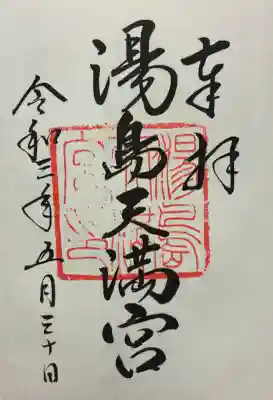 奉拝
湯島天満宮
令和二年五月三十日